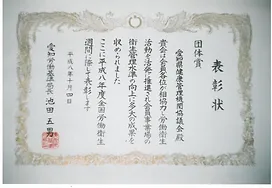 表彰状
団体賞
愛知県健康管理機関協議会殿
貴会は会員各位が相協力し労働衛生
活動を活発に推進され会員事業場の
衛生管理水準の向上に多大の成果を
収められました
ここに平成八年度全国労働衛生
週間に際して表彰します
平成八年十月四日
愛知労働基準局長 池田五男